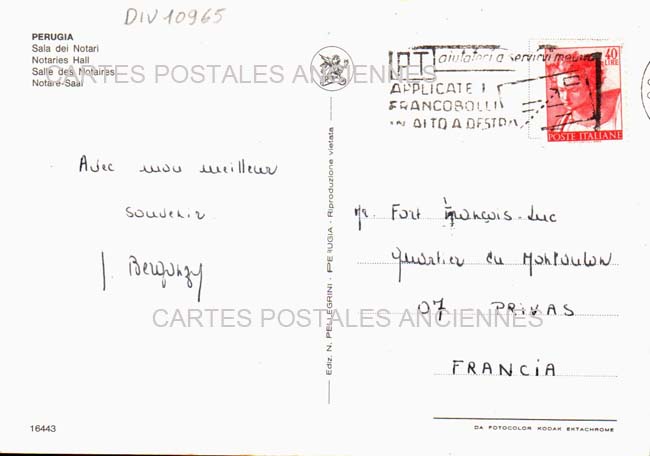 DIV 10965
PERUGIA
Sala dei Notari
Notaries Hall
Salle des Notaires
Notare-Saal
CARTES POSTALES ANCIENNES
PT aiutateci a servirvi meglio
APPLICATE I
FRANCOBOLLI
IN ALTO A DESTRA
40
LIRE
POSTE ITALIANE
Avec mon meilleur
souvenir
J. Bergonzy
Mr. Fort François-Luc
Quartier du Montoulon
07 PRIVAS
FRANCIA
CARTES POSTALES ANCIENNES
Ediz. N. PELLEGRINI - PERUGIA - Riproduzione vietata
16443
DA FOTOCOLOR KODAK EKTACHROME